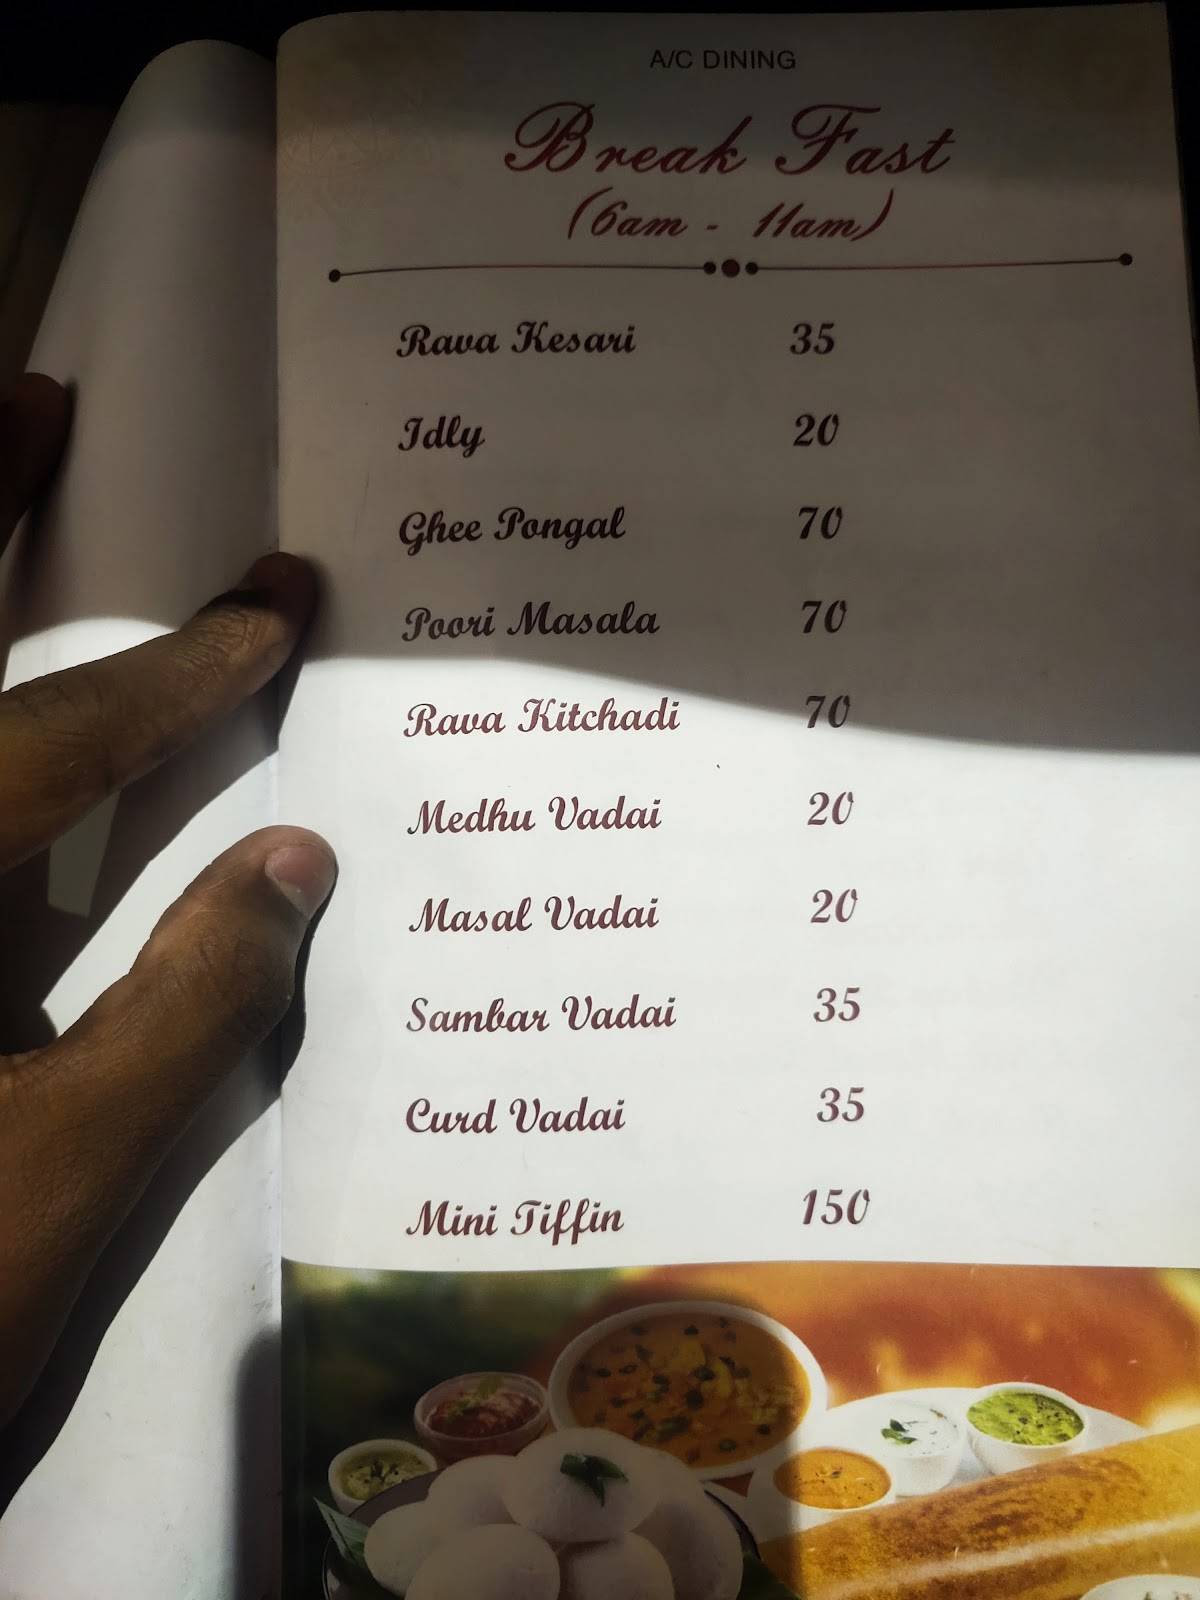 A/C DINING
Break Fast
(6am - 11am)
Rava Kesari 35
Idly 20
Ghee Pongal 70
Poori Masala 70
Rava Kitchadi 70
Medhu Vadai 20
Masal Vadai 20
Sambar Vadai 35
Curd Vadai 35
Mini Tiffin 150